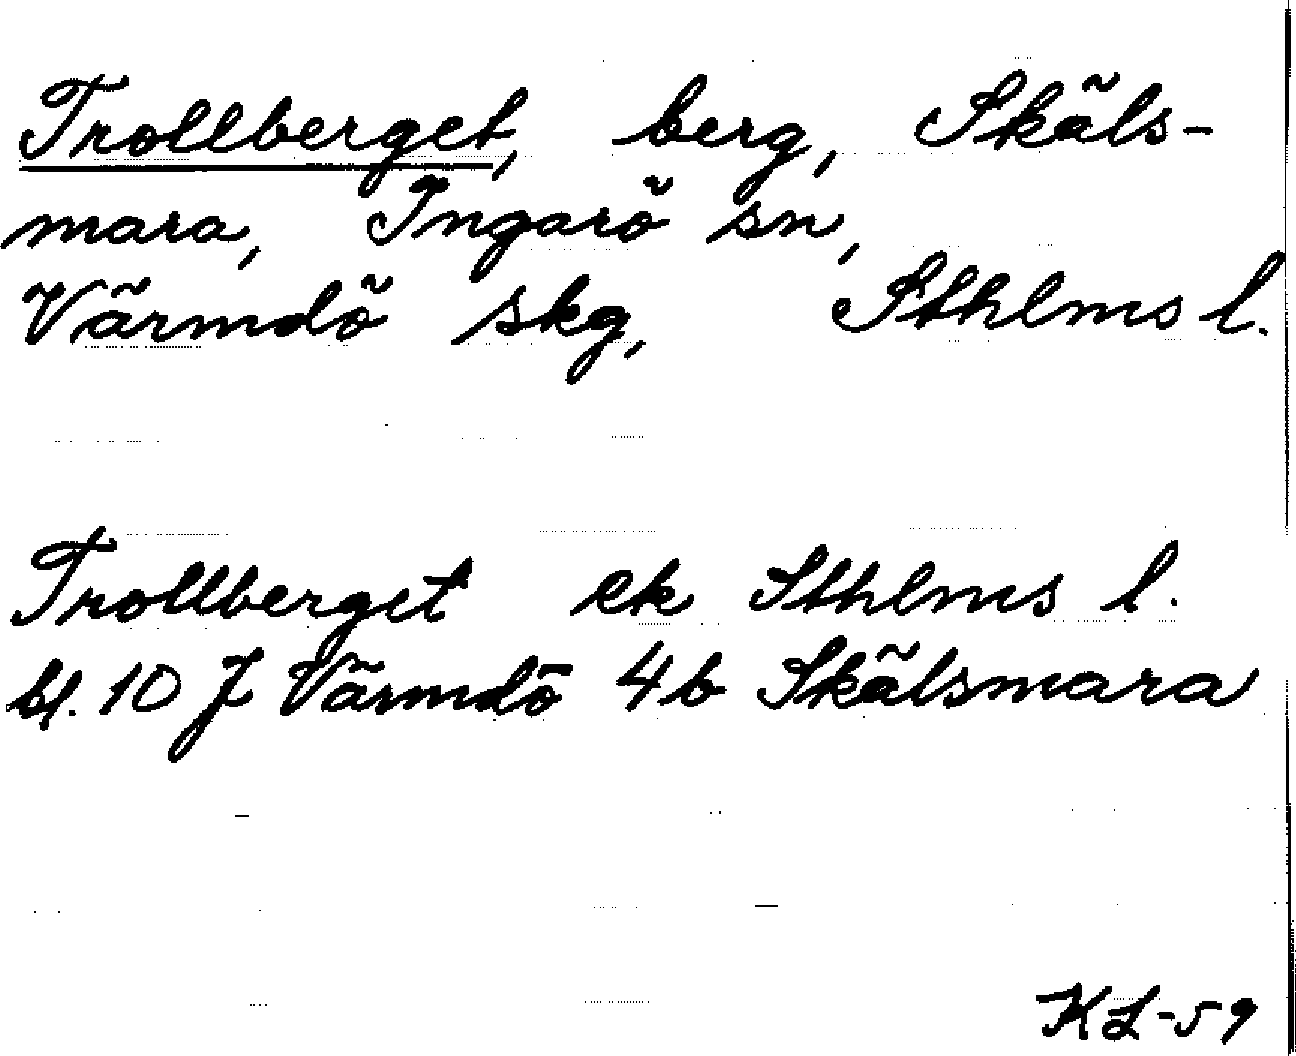 Trollberget, berg, Skäls-
mara, Ingarö sn,
Värmdö skg, Sthlms l.
Trollberget ek Sthlms l.
bl. 10 J Värmdö 4b Skälsmara
KL-59